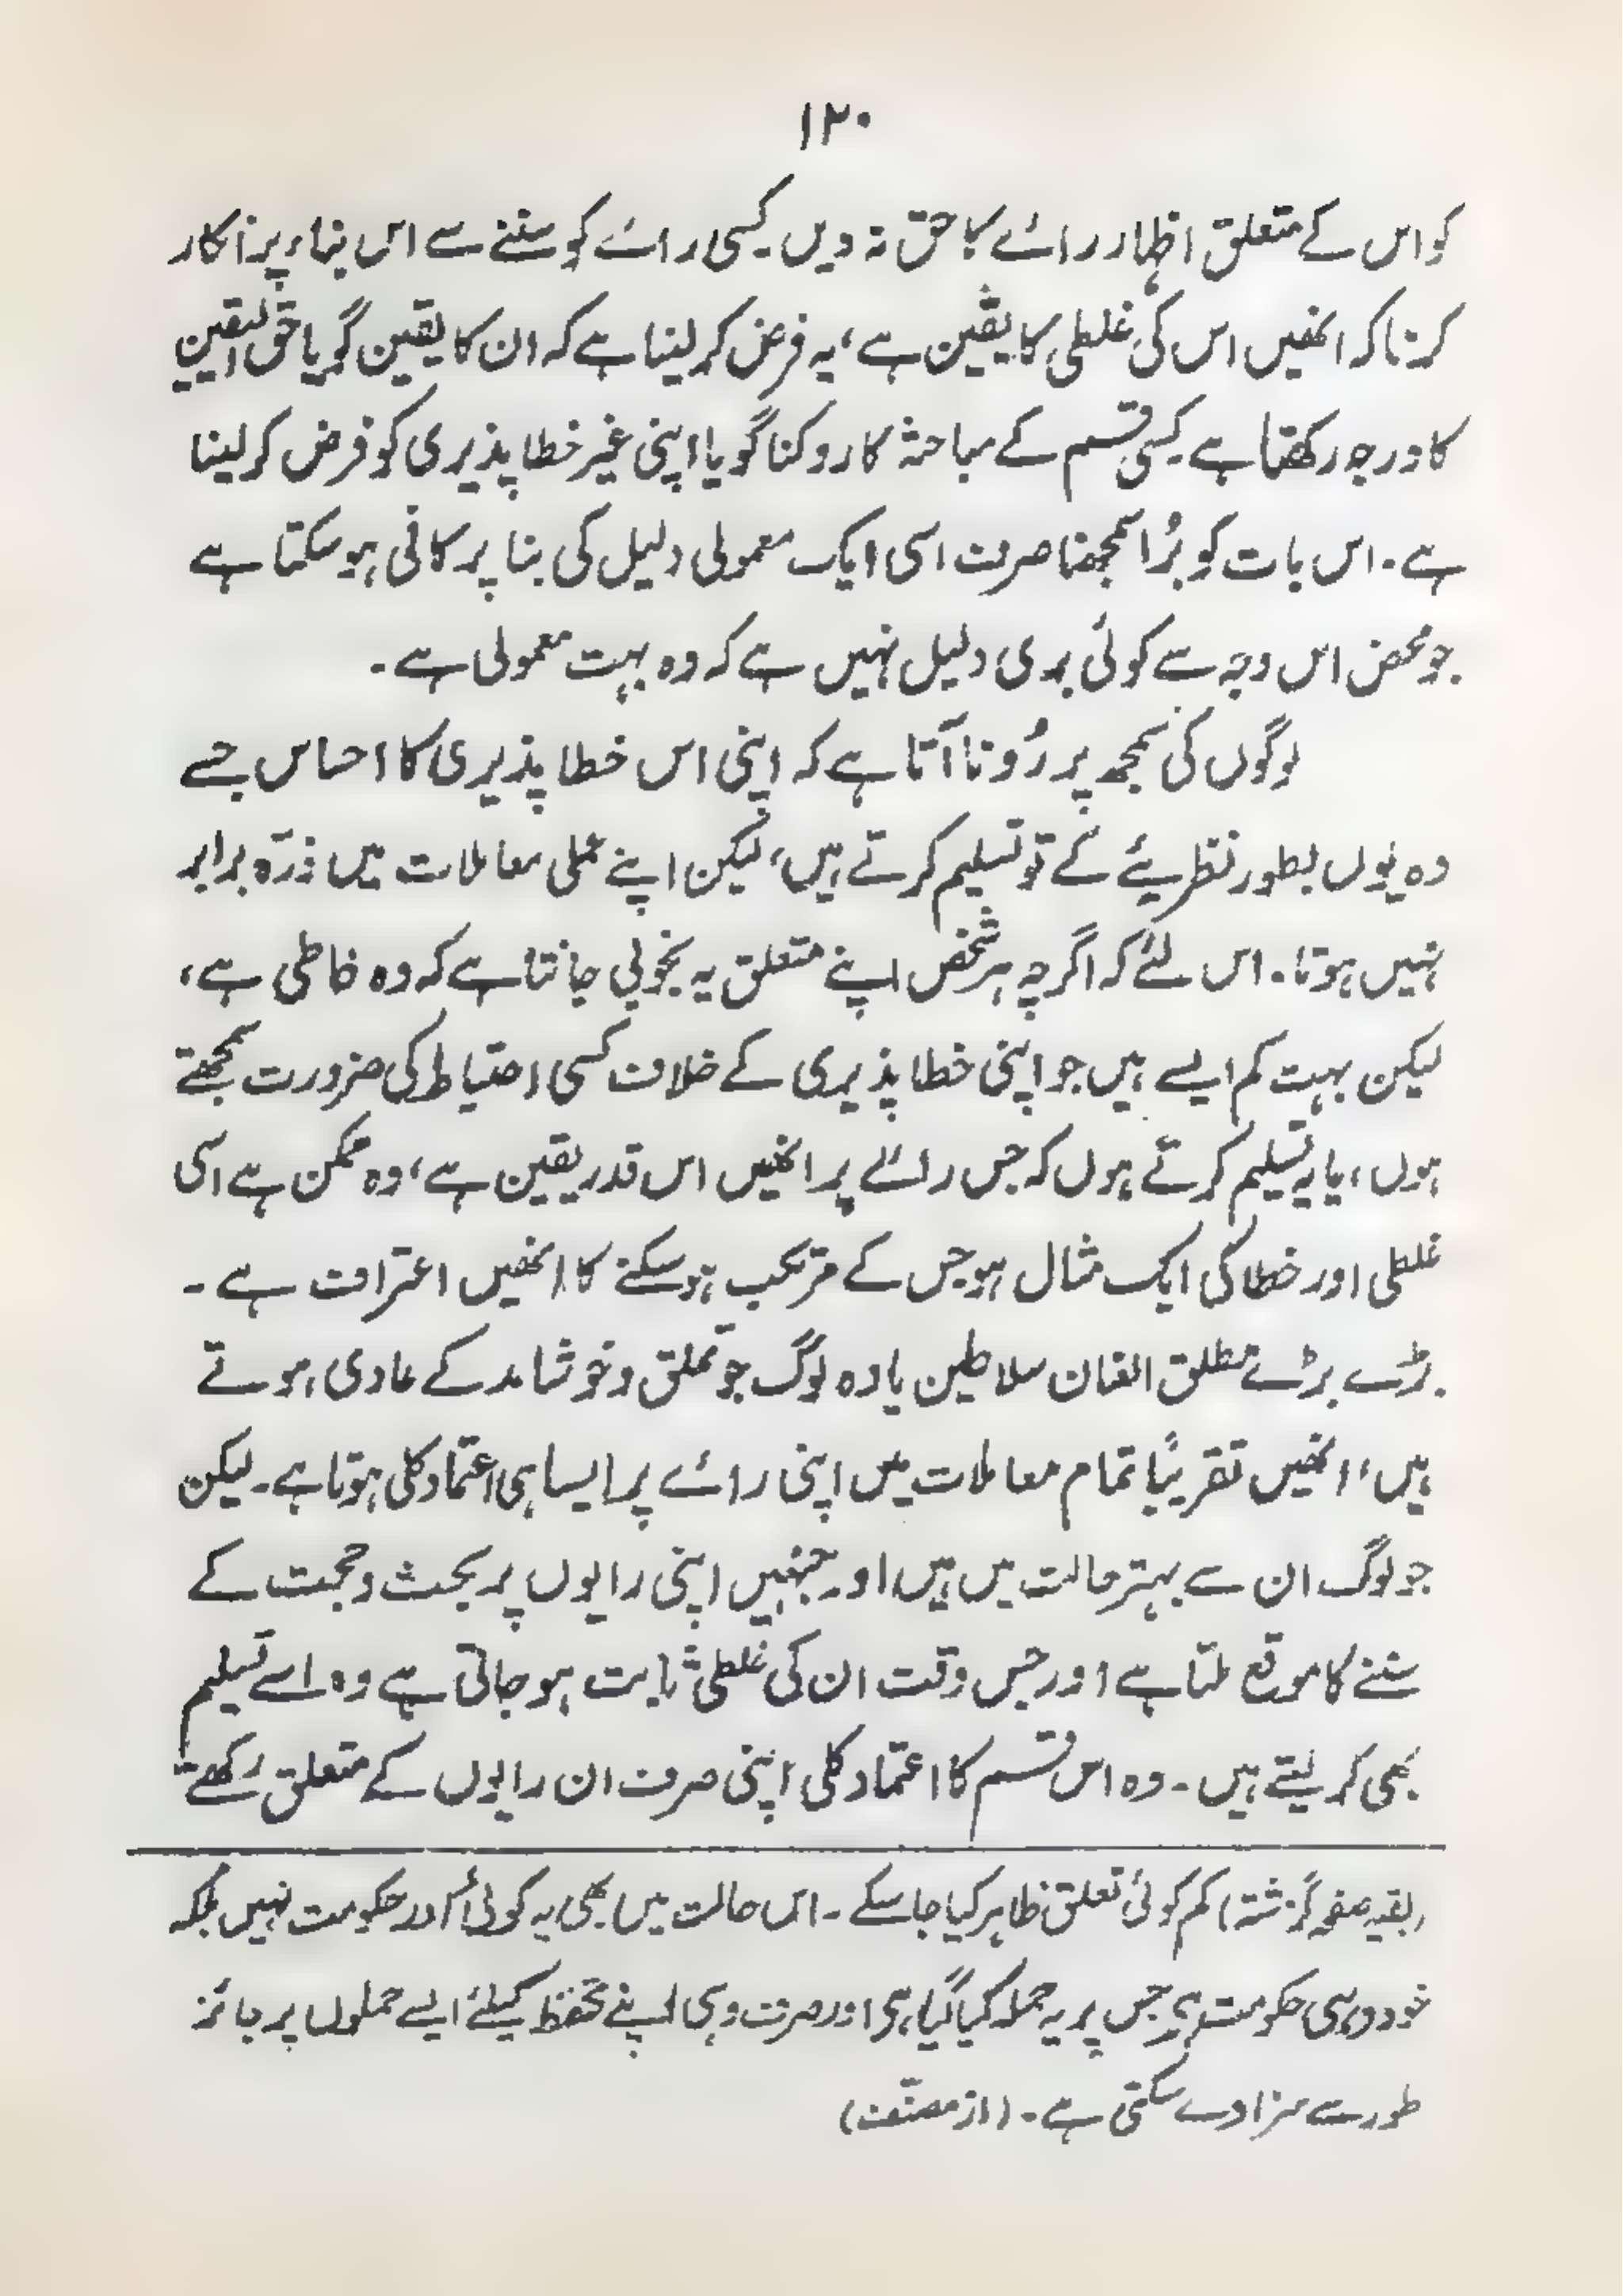 ۱۲۰
کو اس کے متعلق اظہار رائے کا حق نہ دیں۔ کسی رائے کو سننے سے اس بناء پر انکار
کرنا کہ انھیں اس کی غلطی کا یقین ہے، یہ فرض کر لینا ہے کہ ان کا یقین گویا حق الیقین
کا درجہ رکھتا ہے۔ کسی قسم کے مباحثہ کا روکنا گویا اپنی غیر خطا پذیری کو فرض کر لینا
ہے۔ اس بات کو بُرا سمجھنا صرف اسی ایک معمولی دلیل کی بنا پر کافی ہو سکتا ہے
جو محض اس وجہ سے کوئی بری دلیل نہیں ہے کہ وہ بہت معمولی ہے۔
لوگوں کی سمجھ پر رُونا آتا ہے کہ اپنی اس خطا پذیری کا احساس جسے
وہ یوں بطور نظریئے کے تو تسلیم کرتے ہیں، لیکن اپنے عملی معاملات میں ذرّہ برابر
نہیں ہوتا۔ اس لئے کہ اگرچہ ہر شخص اپنے متعلق یہ بخوبی جانتا ہے کہ وہ خاطی ہے،
لیکن بہت کم ایسے ہیں جو اپنی خطا پذیری کے خلاف کسی احتیاط کی ضرورت سمجھتے
ہوں، یا یہ تسلیم کرتے ہوں کہ جس رائے پر انھیں اس قدر یقین ہے، وہ ممکن ہے اسی
غلطی اور خطا کی ایک مثال ہو جس کے مرتکب ہو سکنے کا انھیں اعتراف ہے۔
بڑے بڑے مطلق العنان سلاطین یا وہ لوگ جو تملق و خوشامد کے عادی ہوتے
ہیں، انھیں تقریبًا تمام معاملات میں اپنی رائے پر ایسا ہی اعتماد کلی ہوتا ہے۔ لیکن
جو لوگ ان سے بہتر حالت میں ہیں اور جنہیں اپنی رایوں پر بحث و حجت کے
سننے کا موقع ملتا ہے اور جس وقت ان کی غلطی ثابت ہو جاتی ہے وہ اسے تسلیم
بھی کر لیتے ہیں۔ وہ اس قسم کا اعتماد کلی اپنی صرف ان رایوں کے متعلق رکھتے
(بقیہ صفحہ گزشتہ) کم کوئی تعلق ظاہر کیا جا سکے۔ اس حالت میں بھی یہ کوئی اور حکومت نہیں بلکہ
خود وہی حکومت ہی جس پر یہ حملہ کیا گیا ہی اور صرف وہی اپنے تحفظ کیلئے ایسے حملوں پر جائز
طور سے سزا دے سکتی ہے۔ (از مصنّف)